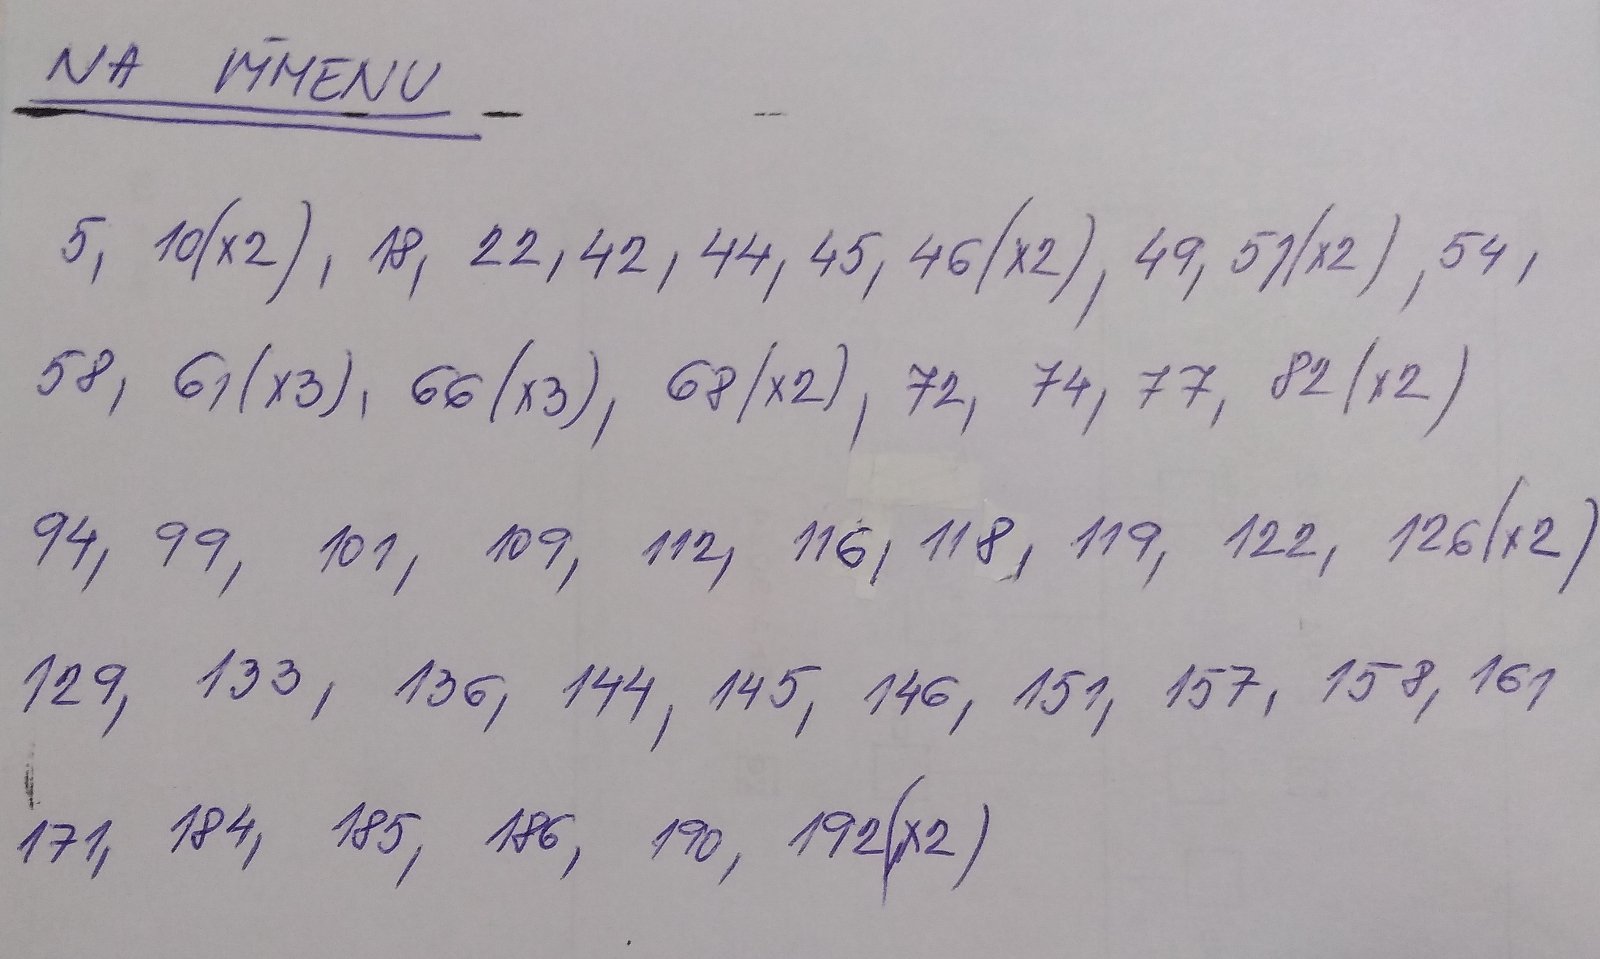 NA VÝMENU
5, 10(x2), 18, 22, 42, 44, 45, 46(x2), 49, 51(x2), 54,
58, 61(x3), 66(x3), 68(x2), 72, 74, 77, 82(x2)
94, 99, 101, 109, 112, 116, 118, 119, 122, 126(x2)
129, 133, 136, 144, 145, 146, 151, 157, 158, 161
171, 184, 185, 186, 190, 192(x2)